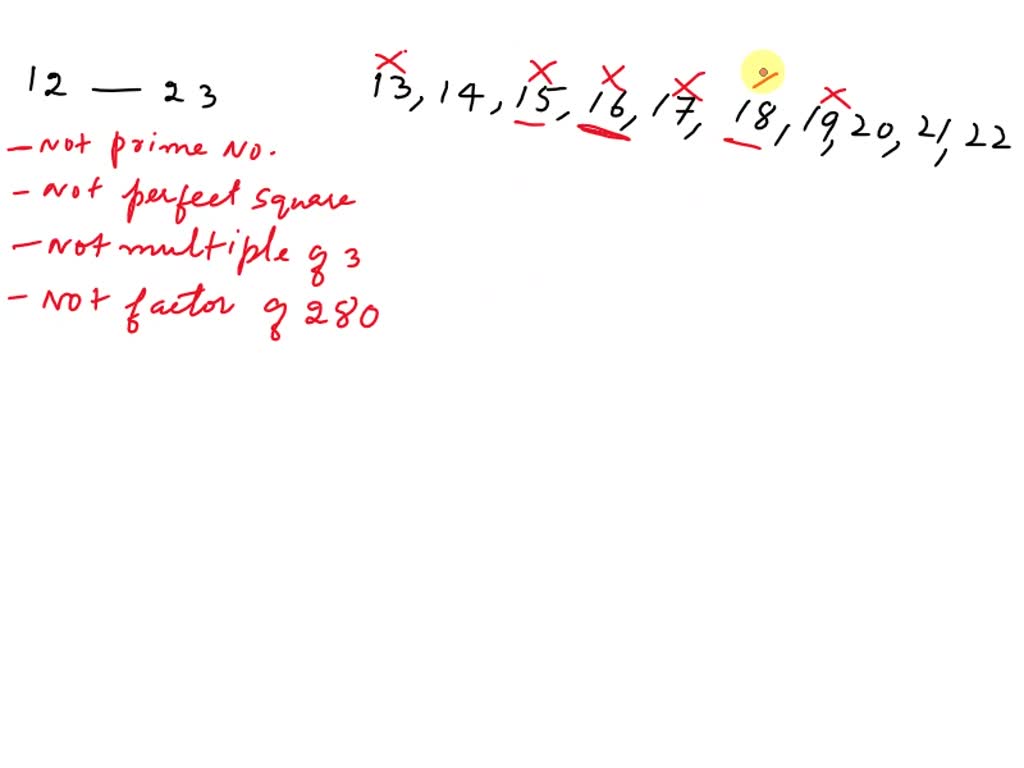 12 — 23
13, 14, 15, 16, 17, 18, 19, 20, 21, 22
- Not prime No.
- Not perfect square
- Not multiple of 3
- Not factor of 280